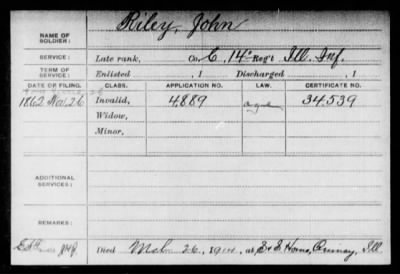 NAME OF SOLDIER: Riley, John
SERVICE: Late rank, Co. E, 14" Reg't Ill. Inf.
TERM OF SERVICE: Enlisted , 1 Discharged , 1
DATE OF FILING. CLASS. APPLICATION NO. LAW. CERTIFICATE NO.
1862 Nov 26 Invalid, 4889 34.539
Widow,
Minor,
ADDITIONAL SERVICES:
REMARKS:
Died Mch 26, 1914, at S & S Home, Quincy, Ill